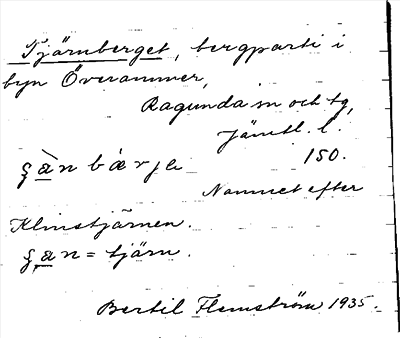 Tjärnberget, bergparti i
byn Överammer,
Ragunda sn och tg,
Jämtl. l.
150.
Namnet efter
Klinstjärnen.
= tjärn.
Bertil Flemström 1935.